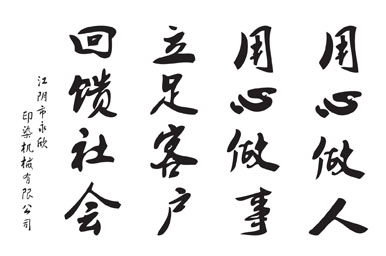 用心做人
用心做事
立足客户
回馈社会
江阴市永欣
印染机械有限公司